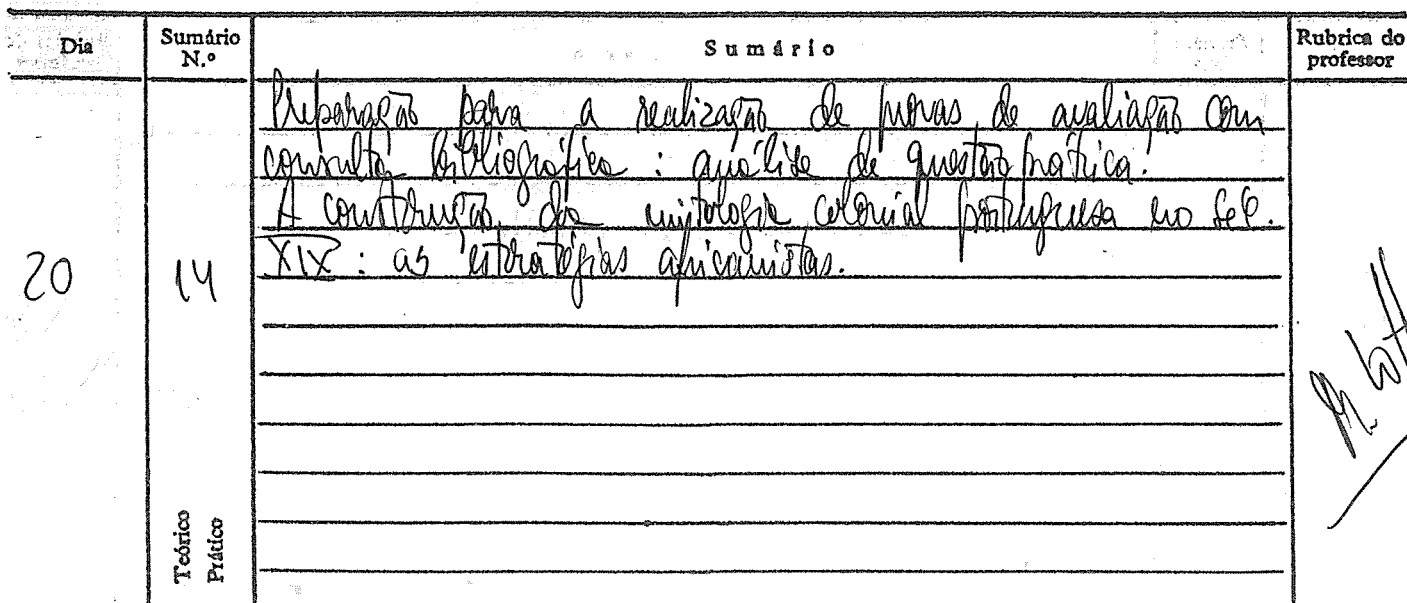 Dia Sumário N.º Sumário Rubrica do professor
Preparação para a realização de provas de avaliação com
consulta bibliográfica: análise de questão prática.
A construção da mitologia colonial portuguesa no séc.
XIX: as estratégias africanistas.
20 14
Teórico
Prático